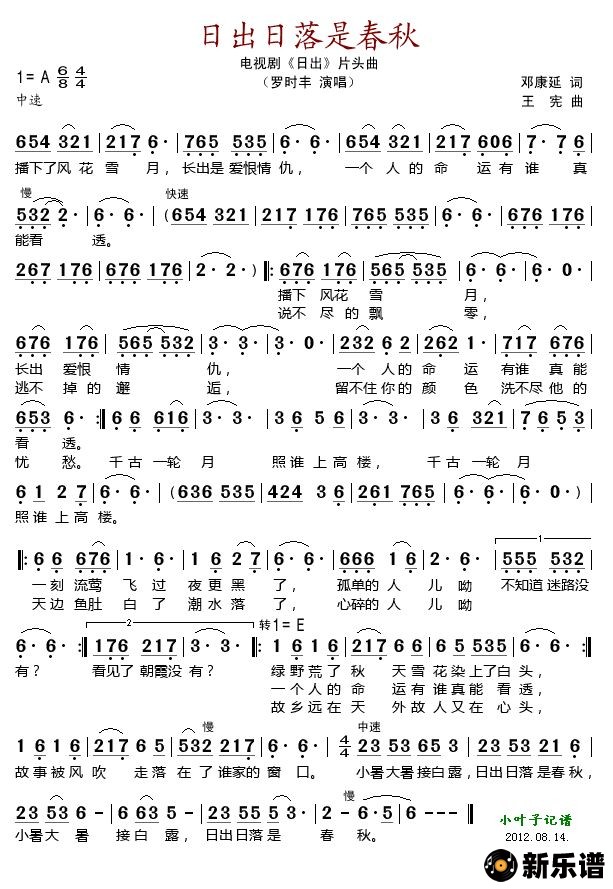 日出日落是春秋
电视剧《日出》片头曲
（罗时丰 演唱）
1=A 6/8 4/4
邓康延 词
中速
王宪 曲
654 321 | 217 6· | 765 535 | 6· 6· | 654 321 | 217 606 | 217 6· |
播下了风花雪月，长出是爱恨情仇，一个人的命运有谁真
慢 快速
532 2· | 6· 6· | (654 321 | 217 176 | 765 535 | 6· 6· | 676 176 |
能看透。
267 176 | 676 176 | 2· 2· ) |: 676 176 | 565 535 | 6· 6· | 6· 0· |
播下风花雪月，
说不尽的飘零，
676 176 | 565 532 | 3· 3· | 3· 0· | 323 2 1 | 6· 1 2 | 717 676 |
长出爱恨情仇，一个人的命运有谁真能
逃不掉的邂逅，留不住你的颜色洗不尽他的
653 6· :| 6 6 616 | 3· 3· | 3 6 5 6 | 3· 3· | 3 6 321 | 7 6 5 3 |
看透。
忧愁。千古一轮月照谁上高楼，千古一轮月
6 1 2 7 | 6· 6· | (636 535 | 424 3 6 | 261 765 | 6· 6· | 6· 6· ) |
照谁上高楼。
|: 6 6 676 | 1· 3· | 1 6 2 7 | 6· 6· | 666 1 6 | 2· 6· | 555 532 |
一刻流莺飞过夜更黑了，孤单的人儿呦不知道迷路没
天边鱼肚白了潮水落了，心碎的人儿呦
转1=E
6· 6· :| 176 217 | 3· 3· :|: 1 6 1 6 | 217 6 6 | 6 5 535 | 6· 6· :|
有？看见了朝霞没有？绿野荒了秋天雪花染上了白头，
一个人的命运有谁真能看透，
故乡远在天外故人又在心头，
慢 中速
1 6 1 6 | 217 6 5 | 532 217 | 6· 6· | 4/4 23 53 23 53 | 23 53 2 3 |
故事被风吹走落在了谁家的窗口。小暑大暑接白露，日出日落是春秋，
慢
23 53 6 - | 6 63 5 - | 23 53 2 3 | 6 - - - | 6 0 0 0 ‖
小暑大暑接白露，日出日落是春秋。
小叶子记谱
2012.08.14.
新乐谱